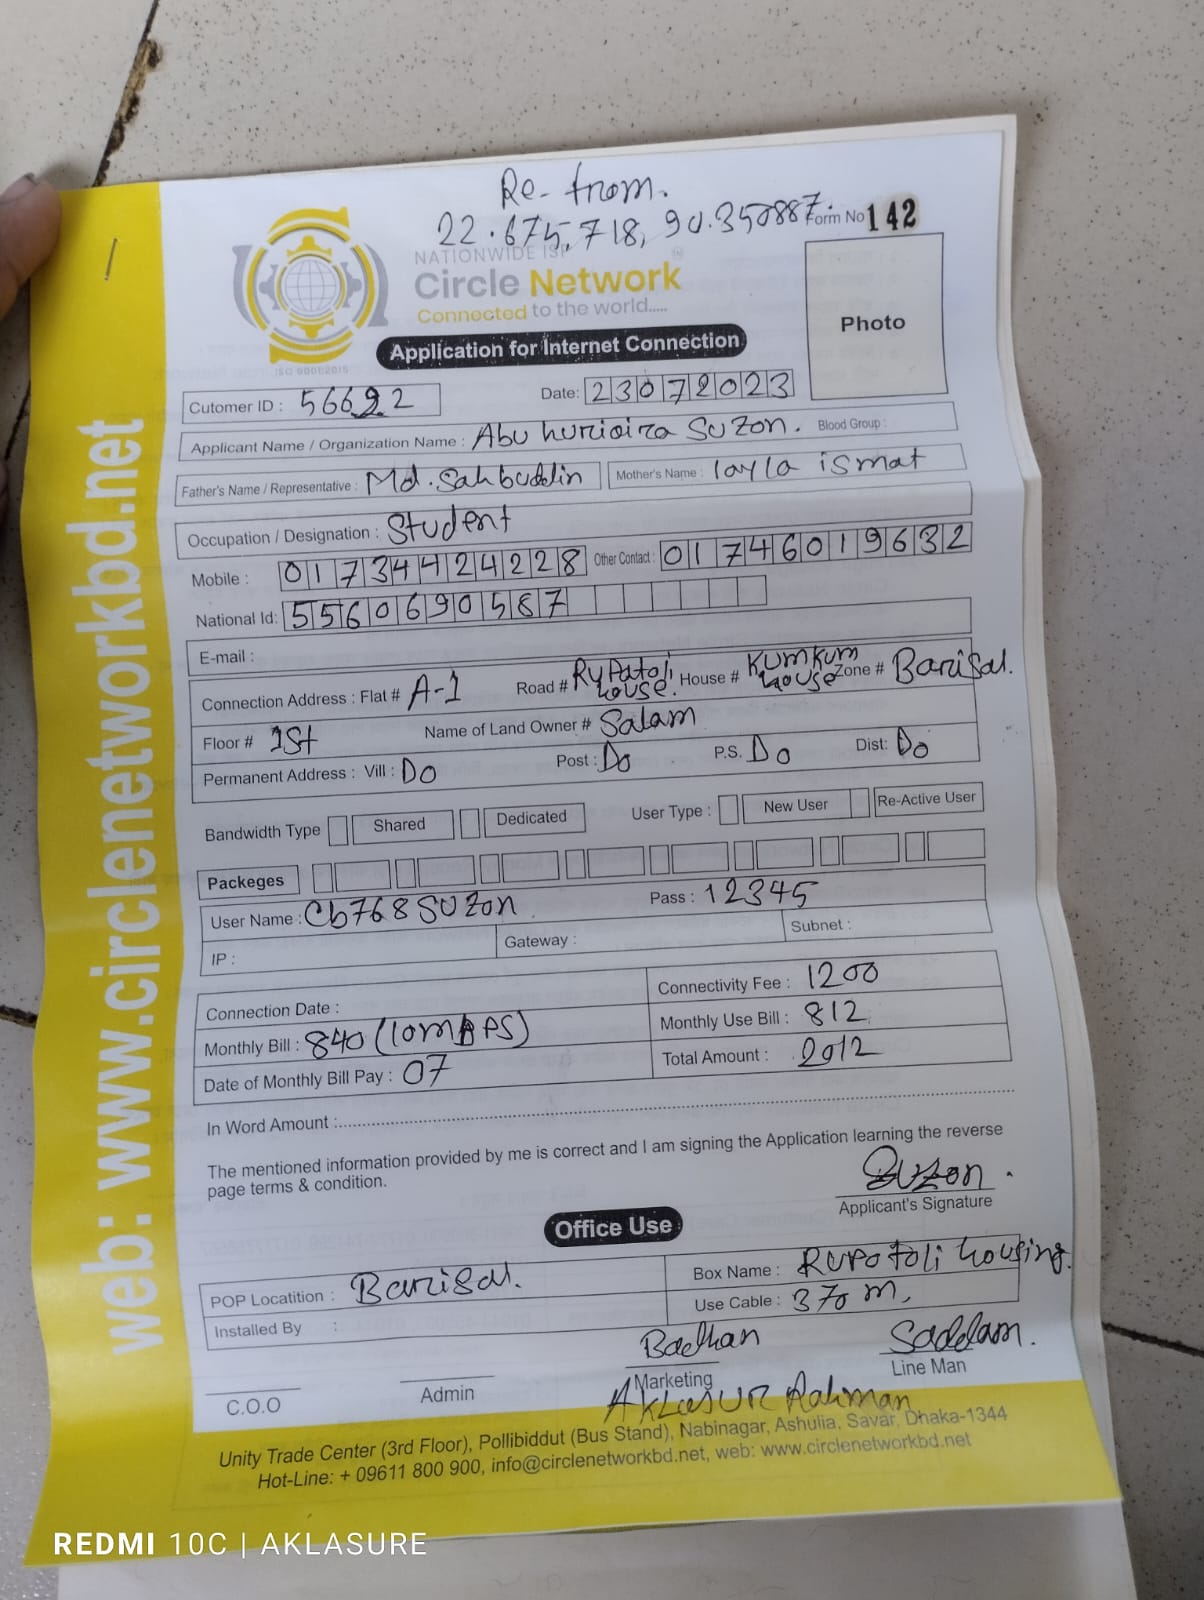 Re-from.
22.675,718, 90.350887
Form No 142
NATIONWIDE ISP
Circle Network
Connected to the world.....
ISO 9001:2015
Photo
Application for Internet Connection
Cutomer ID : 56622 Date: 23072023
Applicant Name / Organization Name : Abu hurioira Suzon. Blood Group :
Father's Name / Representative : Md. Sahbuddin Mother's Name : layla ismat
Occupation / Designation : Student
Mobile : 01734424228 Other Contact : 01746019632
National Id: 5560690587
E-mail :
Connection Address : Flat # A-1 Road # Rupatoli house. House # Kumkum house Zone # Barisal.
Floor # 1st Name of Land Owner # Salam
Permanent Address : Vill : Do Post : Do P.S. Do Dist: Do
Bandwidth Type Shared Dedicated User Type : New User Re-Active User
Packeges
User Name : Cb768SUZon Pass : 12345
IP : Gateway : Subnet :
Connection Date : Connectivity Fee : 1200
Monthly Bill : 840 (10MBPS) Monthly Use Bill : 812
Date of Monthly Bill Pay : 07 Total Amount : 2012
In Word Amount :
The mentioned information provided by me is correct and I am signing the Application learning the reverse
page terms & condition.
Suzon.
Applicant's Signature
Office Use
POP Locatition : Barisal. Box Name : Rupatoli housing.
Installed By : Use Cable : 370 m,
Badhan Saddam.
C.O.O Admin Marketing Line Man
Aklasur Rahman
Unity Trade Center (3rd Floor), Pollibiddut (Bus Stand), Nabinagar, Ashulia, Savar, Dhaka-1344
Hot-Line: + 09611 800 900, info@circlenetworkbd.net, web: www.circlenetworkbd.net
web: www.circlenetworkbd.net
REDMI 10C | AKLASURE